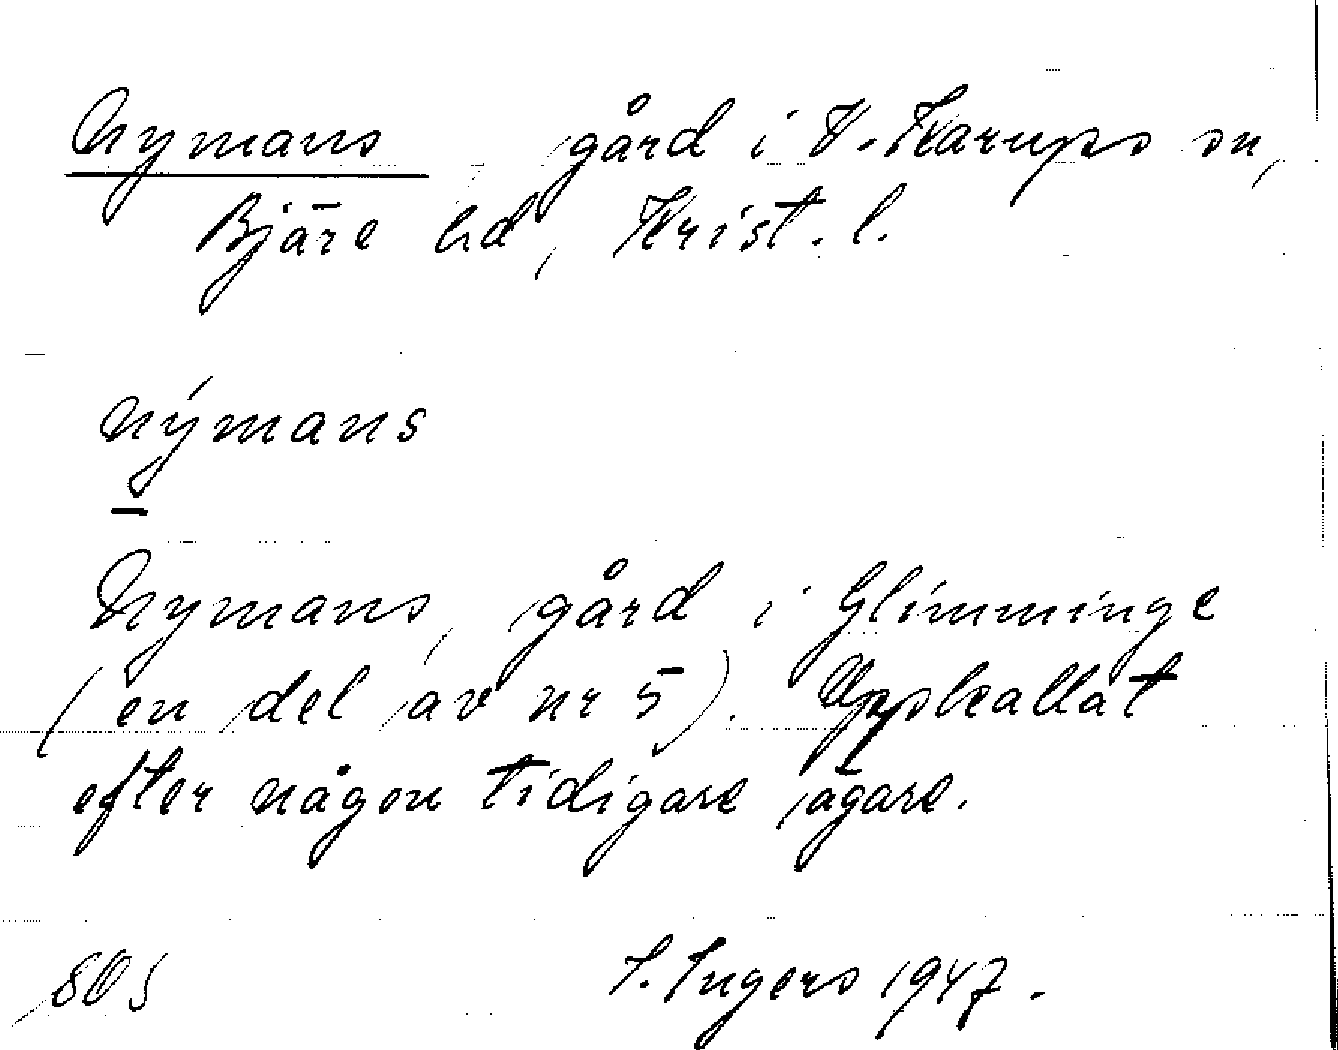 Nymans gård i V. Karups sn,
Bjäre hd, Krist. l.
nýmans
Nymans, gård i Glimminge
(en del av nr 5). Uppkallat
efter någon tidigare ägare.
805 I. Ingers 1947.